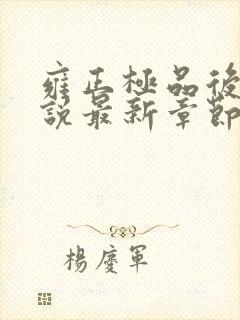 雍正極品後
說最新章節
楊慶軍